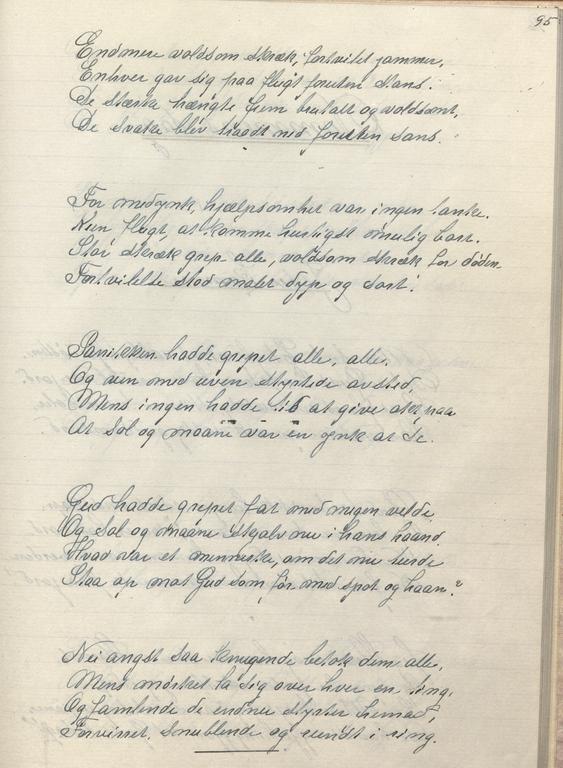 95
Endmere voldsom skræk, fortvilet jammer,
Enhver gav sig paa flugt foruten stans.
De stærke trængte frem brutalt og voldsomt,
De svake blev traadt ned foruten sans.
For medynk, hjælpsomhet var ingen tanke.
Nun flugt, at komme hurtigst mulig bort.
Stor skræk grep alle, voldsom skræk for døden
Fortvilelse stod malet dyp og sort.
Panikken hadde grepet alle, alle.
Og ven med uven styrtede avsted.
Mens ingen hadde tid at give akt paa
At sol og maane var en ynk at se.
Gud hadde grepet fat med megen velde
Og sol og maane skjalv nu i hans haand.
Hvad var et menneske, om det nu turde
Staa op mot Gud som før med spot og haan?
Nei angst saa knugende betok dem alle,
Mens mørket la sig over hver en ting.
Og famlende de endnu styrter hema,
Forvirret. Snublende og rundt i ring.